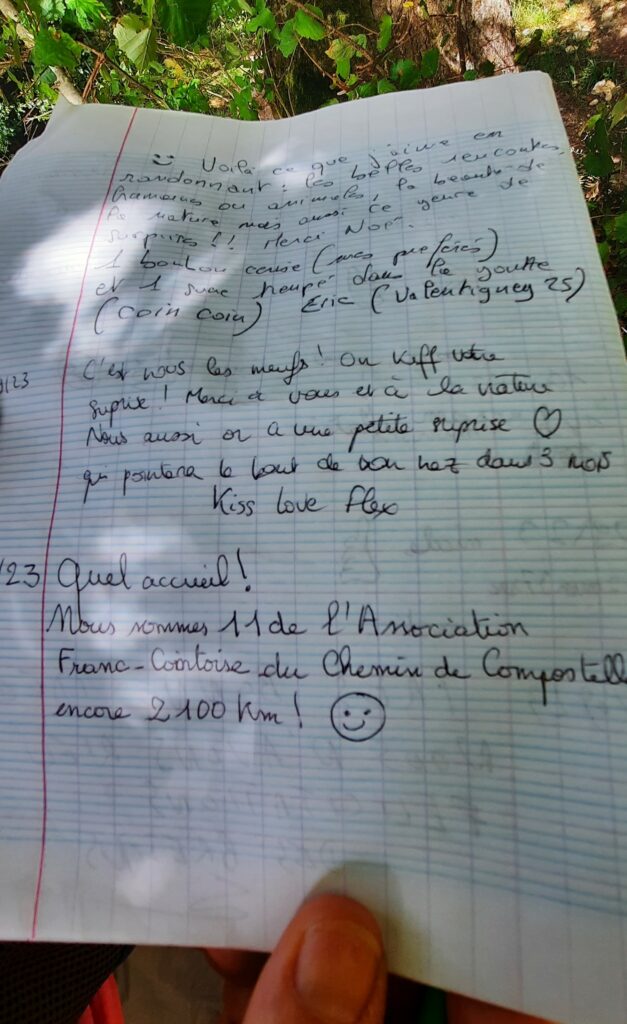 Voilà ce que j'aime en
randonnant : les belles rencontres,
humaines ou animales, la beauté de
la nature mais aussi ce genre de
surprises !! Merci
1 bonbon cerise (mes préférés)
et 1 sucre trempé dans la goutte
(Coin coin) Eric (Valentigney 25)
/23 C'est nous les meufs ! On kiff votre
suprise ! Merci à vous et à la nature
Nous aussi on a une petite suprise ♡
qui pointera le bout de son nez dans 3 mois
Kiss love flex
/23 Quel accueil !
Nous sommes 11 de l'Association
Franc-Comtoise du Chemin de Compostell
encore 2100 Km !